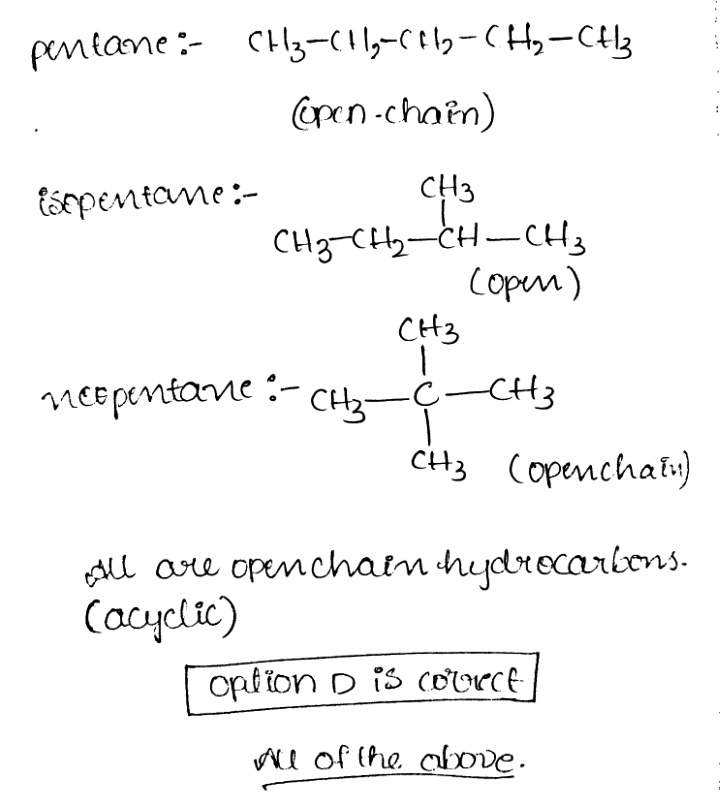 pentane :- CH3-CH2-CH2-CH2-CH3
(open-chain)
isopentane :-
CH3
CH3-CH2-CH-CH3
(open)
CH3
neopentane :- CH3-C-CH3
CH3 (openchain)
All are openchain hydrocarbons.
(acyclic)
option D is correct
All of the above.